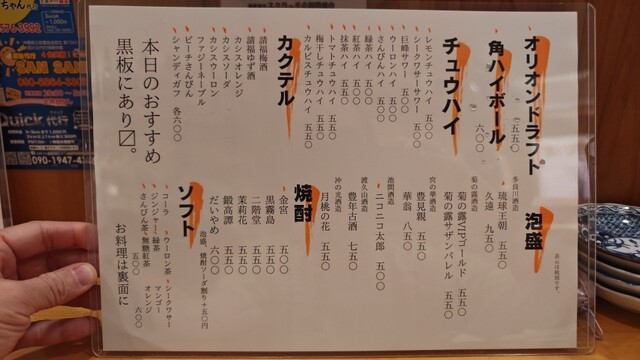 オリオンドラフト
五五〇
角ハイボール
六〇〇
チュウハイ
レモンチュウハイ 五〇〇
シークワーサーサワー 五五〇
巨峰サワー 五〇〇
ウーロンハイ 五〇〇
さんぴんハイ 五〇〇
緑茶ハイ 五五〇
紅茶ハイ 五五〇
抹茶ハイ 五五〇
トマトチュウハイ 五五〇
梅干しチュウハイ 五五〇
カルピスチュウハイ 五五〇
カクテル
請福梅酒
請福ゆず酒
カシスオレンジ
カシスソーダ
カシスウーロン
ファジーネーブル
ピーチさんぴん
シャンディガフ 各六〇〇
本日のおすすめ
黒板にあり〼。
泡盛
表示は税別です。
多良川酒造
琉球王朝 五五〇
久遠 九五〇
菊の露酒造
菊の露VIPゴールド 五五〇
菊の露サザンバレル 五五〇
宮の華酒造
豊見親 五五〇
華翁 八五〇
池間酒造
ニコニコ太郎 五五〇
渡久山酒造
豊年古酒 七五〇
沖の光酒造
月桃の花 五五〇
焼酎
金宮 五〇〇
黒霧島 五五〇
二階堂 五五〇
茉莉花 五五〇
鍛高譚 五五〇
だいやめ 六〇〇
泡盛、焼酎ソーダ割り+五〇円
ソフト
コーラ
ウーロン茶
シークワサー
ジンジャー
緑茶
マンゴー
さんぴん茶
無糖紅茶
オレンジ
五〇〇
六〇〇
お料理は裏面に
ちゃん
576-3592
SAN SAN
Quick 代行
090-1947-4